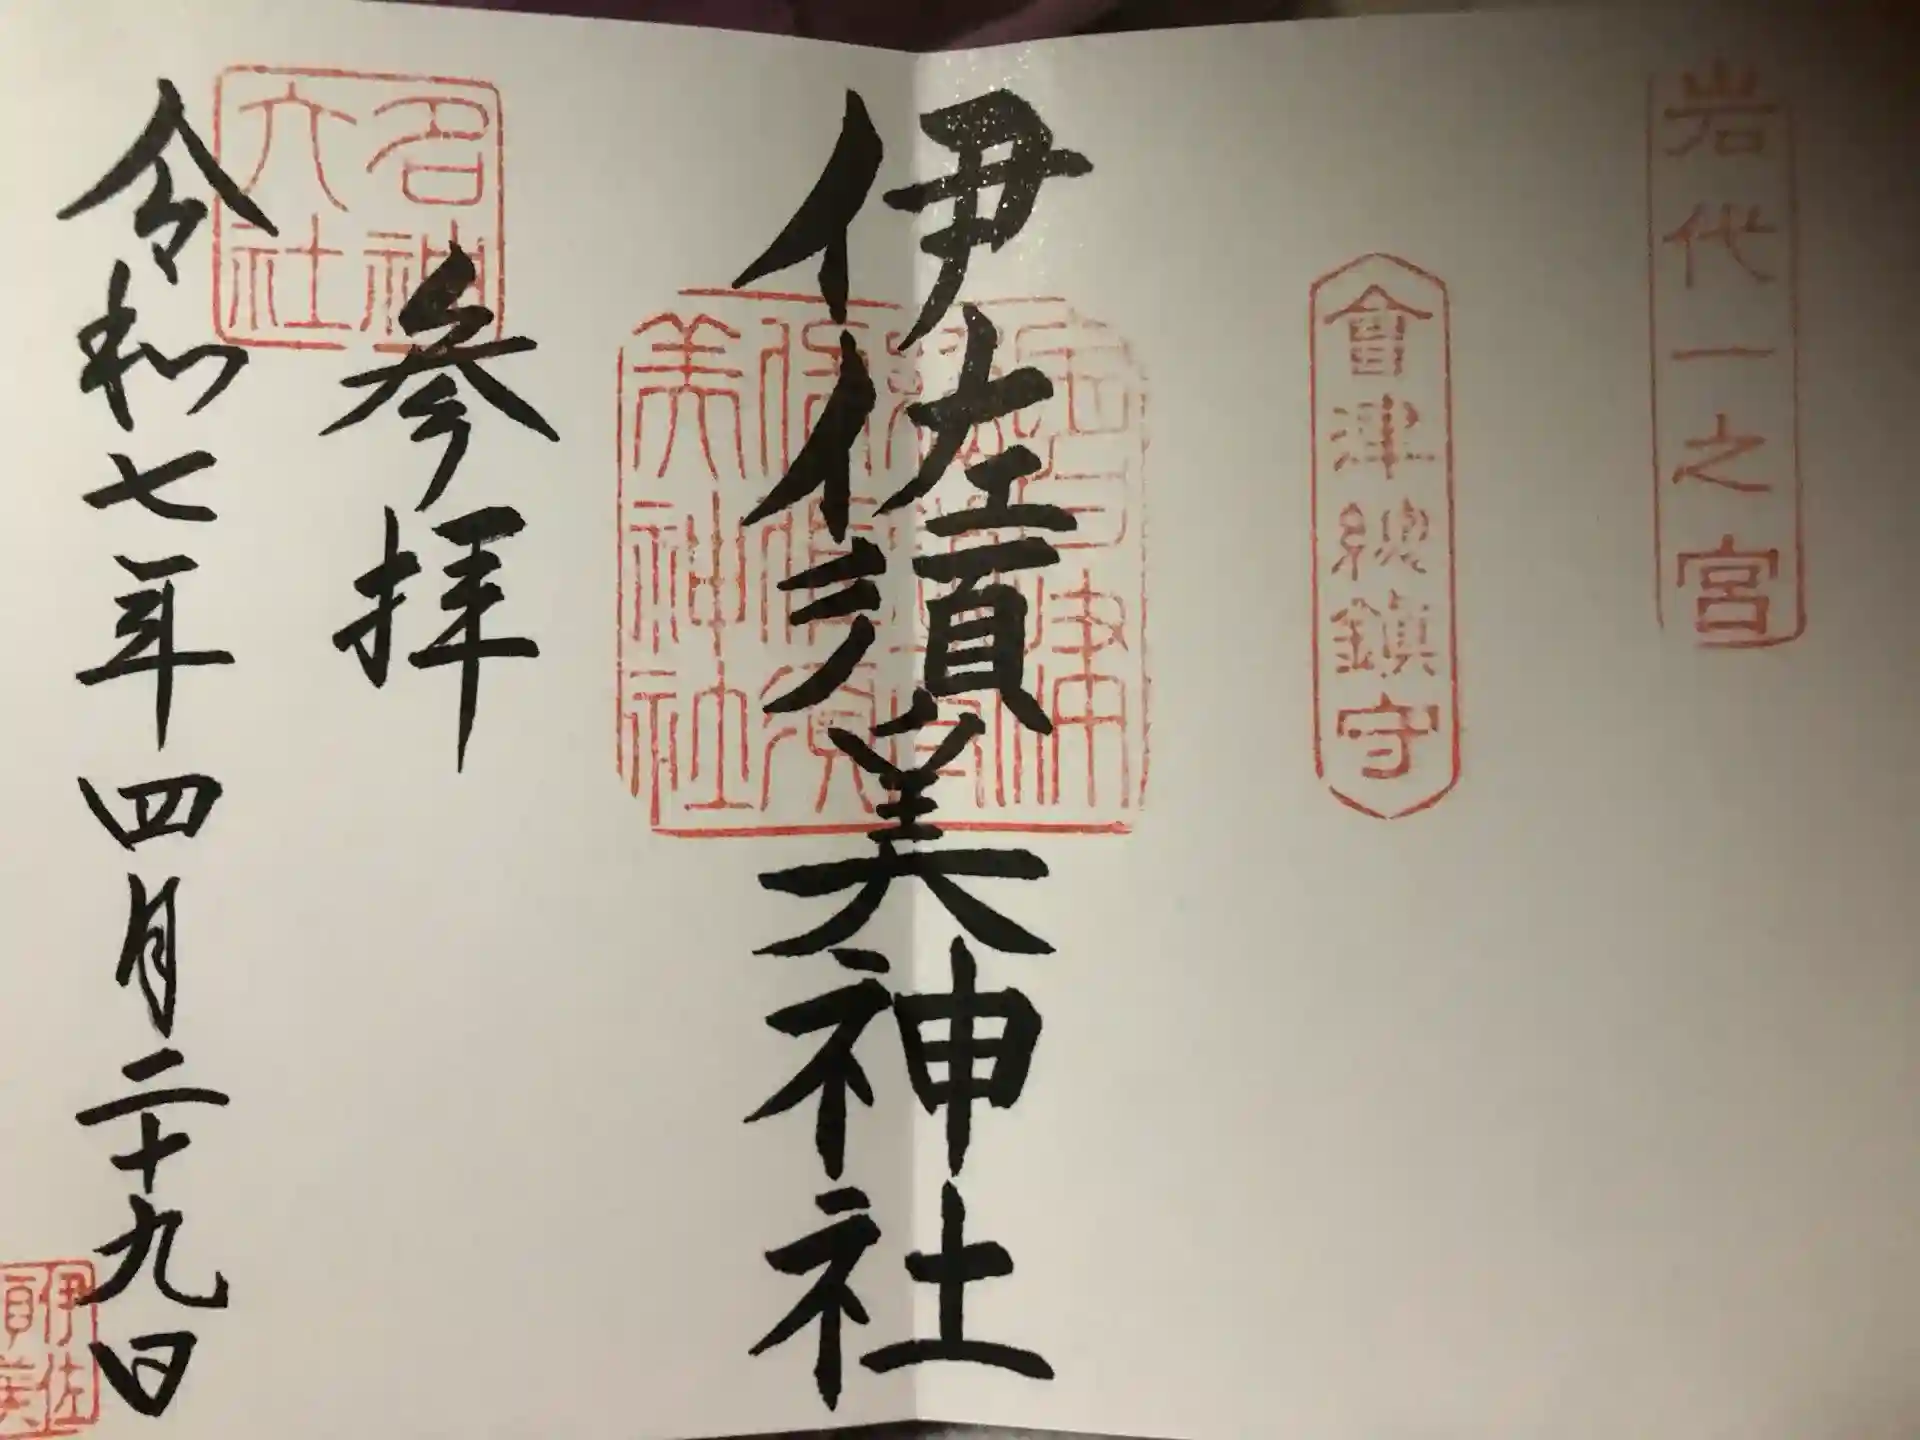 岩代一之宮
會津總鎮守
伊佐須美神社
伊佐須
美神社
名神
大社
参拝
令和七年四月二十九日
伊佐
須美